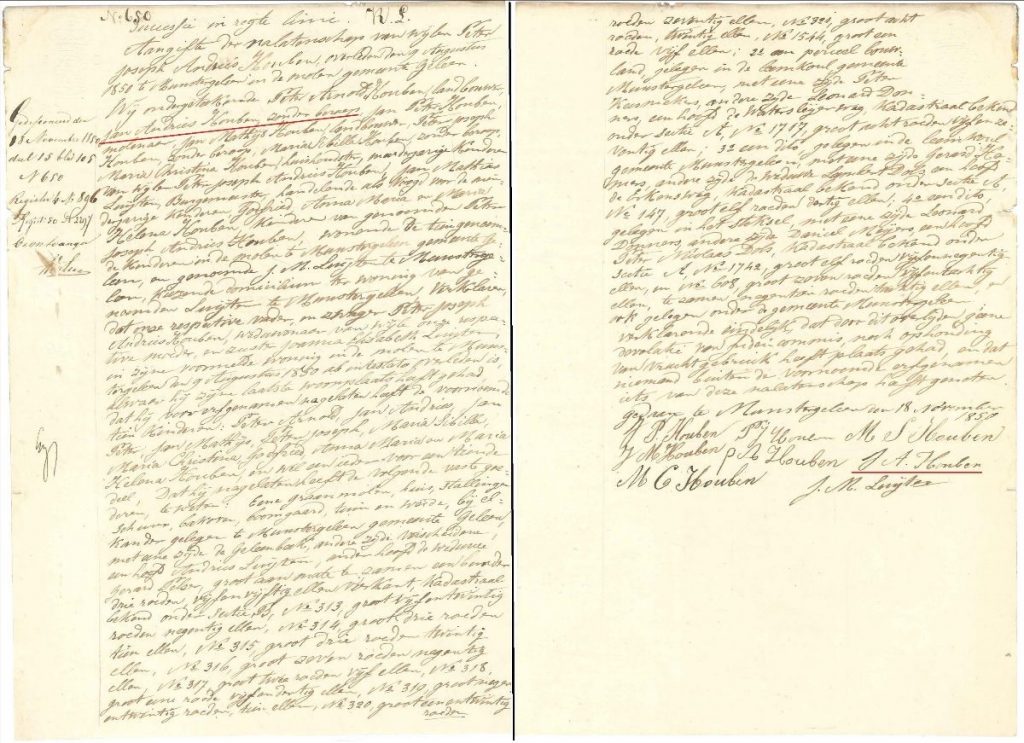 No. 680
Successie in regte linie. W. L.
Aangifte der nalatenschap van wijlen Peter
Joseph Andries Houben, overleden den 9 Augustus
1850 te Munstergeleen in de molen gemeente Geleen.
Wij ondergeteekende Peter Arnold Houben, landbouwer,
Jan Andries Houben, zonder beroep, Jan Peter Houben,
molenaar, Jan Mathijs Houben, landbouwer, Peter Joseph
Houben, zonder beroep, Maria Sibilla Houben, zonder beroep,
Maria Christina Houben, huishoudster, meerderjarige kinderen
van wijlen Peter Joseph Andries Houben, Jan Mathis
Luijten, Burgemeester, handelende als voogd van de min-
derjarige kinderen, Godfried, Anna Maria en Maria
Helena Houben, kinderen van genoemden Peter
Joseph Andries Houben, wonende de tien genoem-
de kinderen in de molen te Munstergeleen gemeente Ge-
leen, en genoemde J. M. Luijten te Munstergeleen,
kiezende domicilium ter woning van ge-
noemden Luijten te Munstergeleen, verklaren,
dat onze respective vader, en zwager Peter Joseph
Andries Houben, weduwenaar van wijlen onze respec-
tive moeder, en zuster Joanna Elisabeth Luijten,
in zijne voormelde woning in de molen te Muns-
tergeleen den 9 Augustus 1850 ab intestato overleden is,
alwaar hij zijne laatste woonplaats heeft gehad
dat hij voor erfgenamen nagelaten heeft de voornoemde
tien kinderen: Peter Arnold, Jan Andries, Jan
Peter, Jan Mathijs, Peter Joseph, Maria Sibilla,
Maria Christina, Godfried, Anna Maria en Maria
Helena Houben, en wel een ieder voor een tiende
deel, Dat hij nagelaten heeft de volgende vaste goe-
deren, te weten: Eene graanmolen, huis, stallingen
schuur, bakoven, boomgaard, tuin en weide, bij el-
kander gelegen te Munstergeleen gemeente Geleen,
met eene zijde de Geleenbeek, andere zijde verscheidene,
een hoofd Andries Luijten, ander hoofd de weduwe
Gerard Pelser, groot aan mate te zamen een bunder
drie roeden, vijf en vijftig ellen vierkant, Kadastraal
bekend onder sectie B, No. 313, groot vijf en twintig
roeden negentig ellen, No. 314, groot drie roeden
tien ellen, No. 315, groot drie roeden twintig
ellen, No. 316, groot zeven roeden negentig
ellen, No. 317, groot twee roeden vijf ellen, No. 318,
groot eene roede vijf en dertig ellen, No. 319, groot negen
en twintig roeden, tien ellen, No. 320, groot een en twintig
roeden
Gedeponeerd den
18 November 1850
deel 15 blad 105
No. 680
Register 4 No. 896
De Ontvanger
roeden zeventig ellen, No. 321, groot acht
roeden, twintig ellen, No. 1544, groot een
roede vijf ellen; 2e een perceel bouw-
land, gelegen in de leemkoul gemeente
Munstergeleen, met eene zijde Peter
andere zijde Leonard Don-
ners, een hoofd de Waterslegerweg, Kadastraal bekend
onder sectie A, No. 1717, groot acht roeden vijf en ze-
ventig ellen; 3e een dito, gelegen in de leemkoul
gemeente Munstergeleen, met eene zijde Gerard Ha-
mers, andere zijde de weduwe Lambert Dols, een hoofd
Kadastraal bekend onder sectie A,
No. 147, groot elf roeden dertig ellen; 4e een dito,
gelegen in het Steksel, met eene zijde Leonard
Donners, andere zijde Daniel Meijers, een hoofd
Peter Nicolaas Dols, Kadastraal bekend onder
sectie A, No. 1742, groot elf roeden vijf en negentig
ellen, en No. 608, groot zeven roeden vijf en tachtig
ellen, te zamen negentien roeden tachtig ellen,
ook gelegen onder de gemeente Munstergeleen;
verklarende eindelijk, dat door dit overlijden geene
devolatie van fideicommis, noch opschorting
van vruchtgebruik heeft plaats gehad, en dat
niemand buiten de voornoemde erfgenamen
iets van deze nalatenschap heeft genoten.
Gedaan te Munstergeleen den 18 November
1850
P. J. Houben M S Houben
J M Houben P A Houben J A Houben
M C Houben
J. M. Luijten